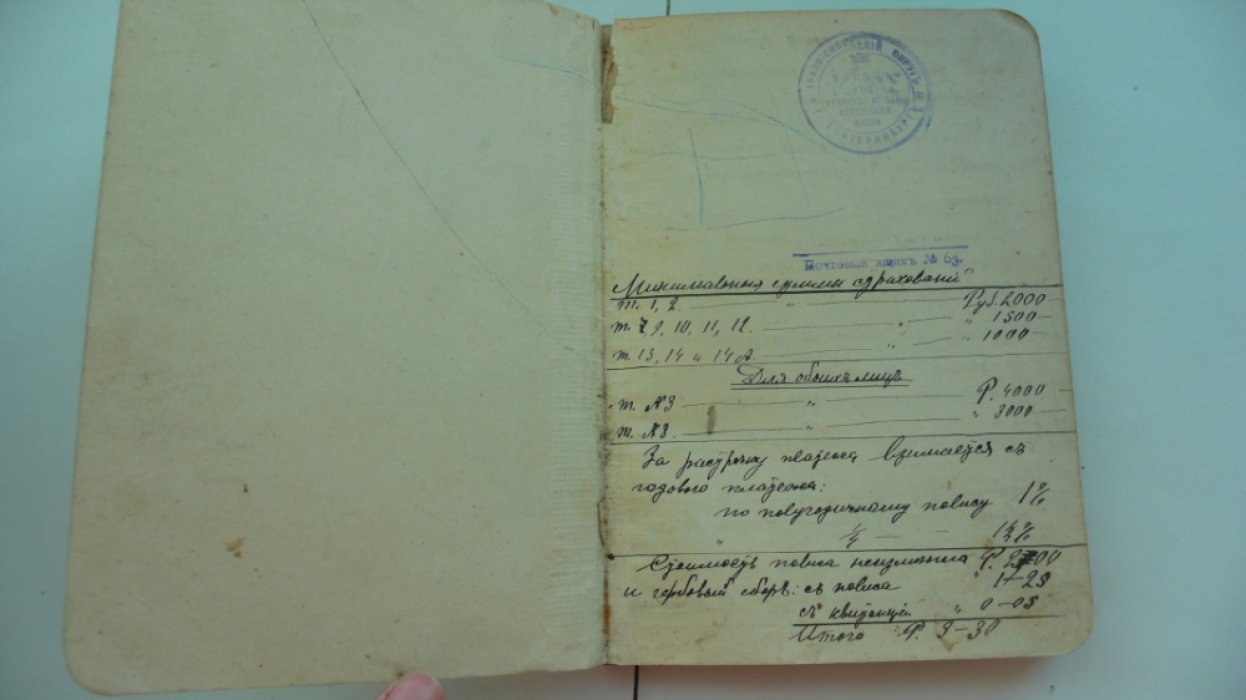 УРАЛО-СИБИРСКІЙ ОКРУГЪ
Г. ЕКАТЕРИНБУРГЪ
Почтовый ящикъ № 63.
Минимальныя суммы страхованій
т. 1, 2. — " — Руб. 2000 —
т. 7, 9, 10, 11, 12. — " — " 1500 —
т. 13, 14 и 14А. — " — " 1000 —
Для обоихъ лицъ
т. №3 — " — Р. 4000 —
т. №3. — " — " 3000 —
За разсрочку платежа взимается съ
годового платежа:
по полугодичному полису 1%
" ¼ — — 1½%
Стоимость полиса неизмѣнна Р. 2-00
и гербовый сборъ: съ полиса " 1-25
съ квитанціи " 0-05
Итого Р. 3-30